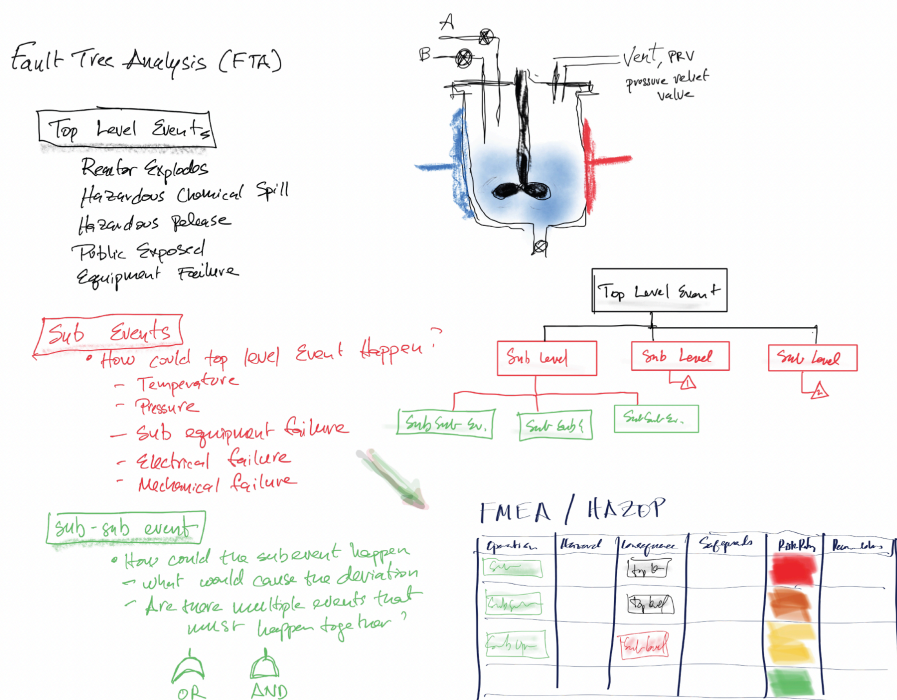 Fault Tree Analysis (FTA)
Top Level Events
Reactor Explodes
Hazardous Chemical Spill
Hazardous Release
Public Exposed
Equipment Failure
A
B
Vent, PRV
pressure relief
valve
Sub Events
• How could top level Event Happen?
- Temperature
- Pressure
- Sub equipment failure
- Electrical failure
- Mechanical failure
Sub-sub event
• How could the subevent happen
- what would cause the deviation
- Are there multiple events that
must happen together?
OR
AND
Top Level Event
Sub Level
Sub Level
Sub Level
1
2
SubSub Ev.
Sub Sub
SubSub Ev.
FMEA / HAZOP
Operation Hazard Consequence Safeguards
Top level
Sub level